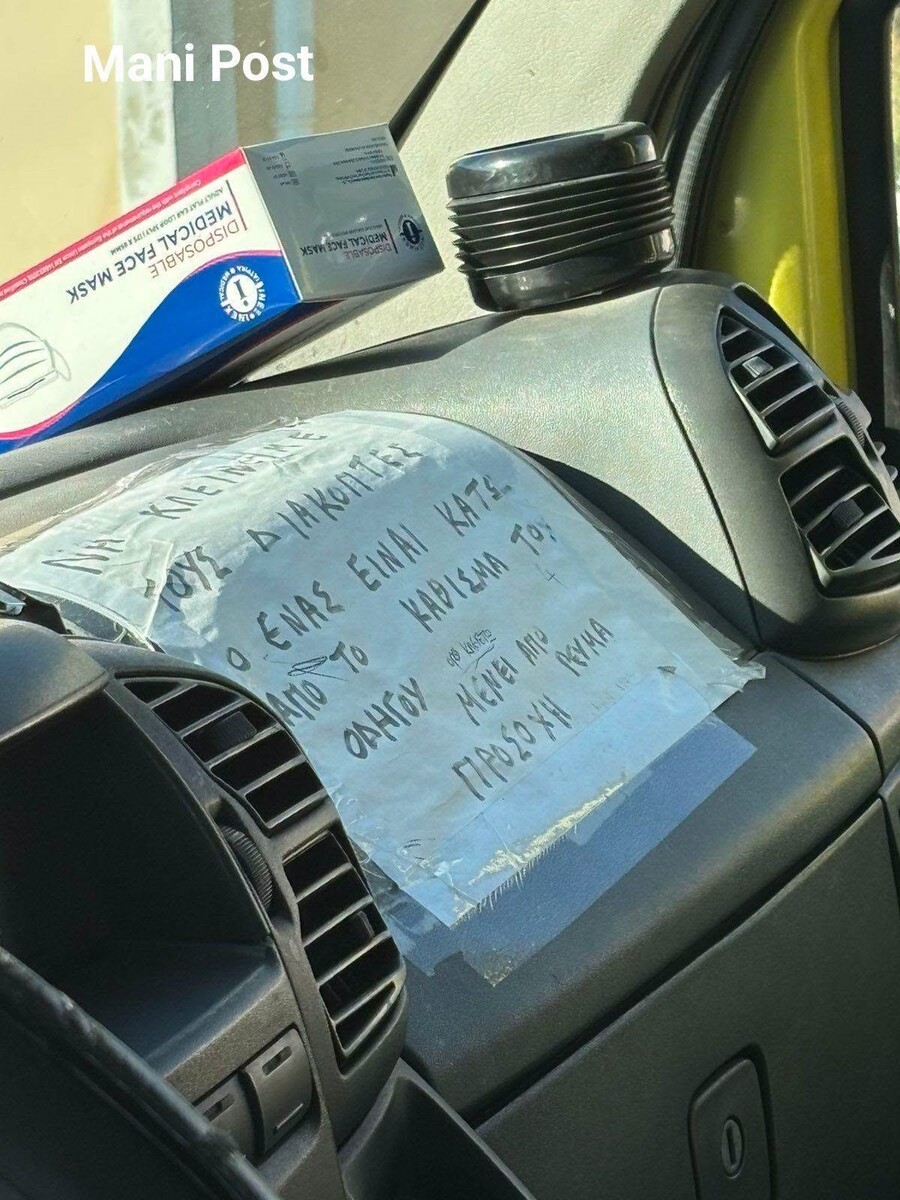 Mani Post
DISPOSABLE
MEDICAL FACE MASK
ADULT FLAT EAR LOOP 3PLY | 175 X 95MM
DISPOSABLE
MEDICAL FACE MASK
ΝΑ ΚΛΕΙΝΕΤΕ
ΤΟΥΣ ΔΙΑΚΟΠΤΕΣ
Ο ΕΝΑΣ ΕΙΝΑΙ ΚΑΤΩ
ΑΠΟ ΤΟ ΚΑΘΙΣΜΑ ΤΟΥ
ΟΔΗΓΟΥ
ΜΕΝΕΙ ΑΠΟ
ΠΡΟΣΟΧΗ ΡΕΥΜΑ